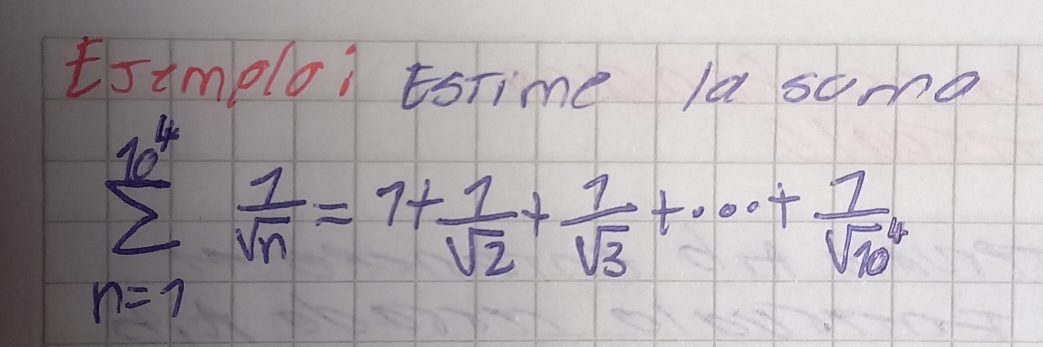 Ejemplo: Estime la suma
\sum_{n=1}^{10^4} \frac{1}{\sqrt{n}} = 1 + \frac{1}{\sqrt{2}} + \frac{1}{\sqrt{3}} + \cdots + \frac{1}{\sqrt{10^4}}